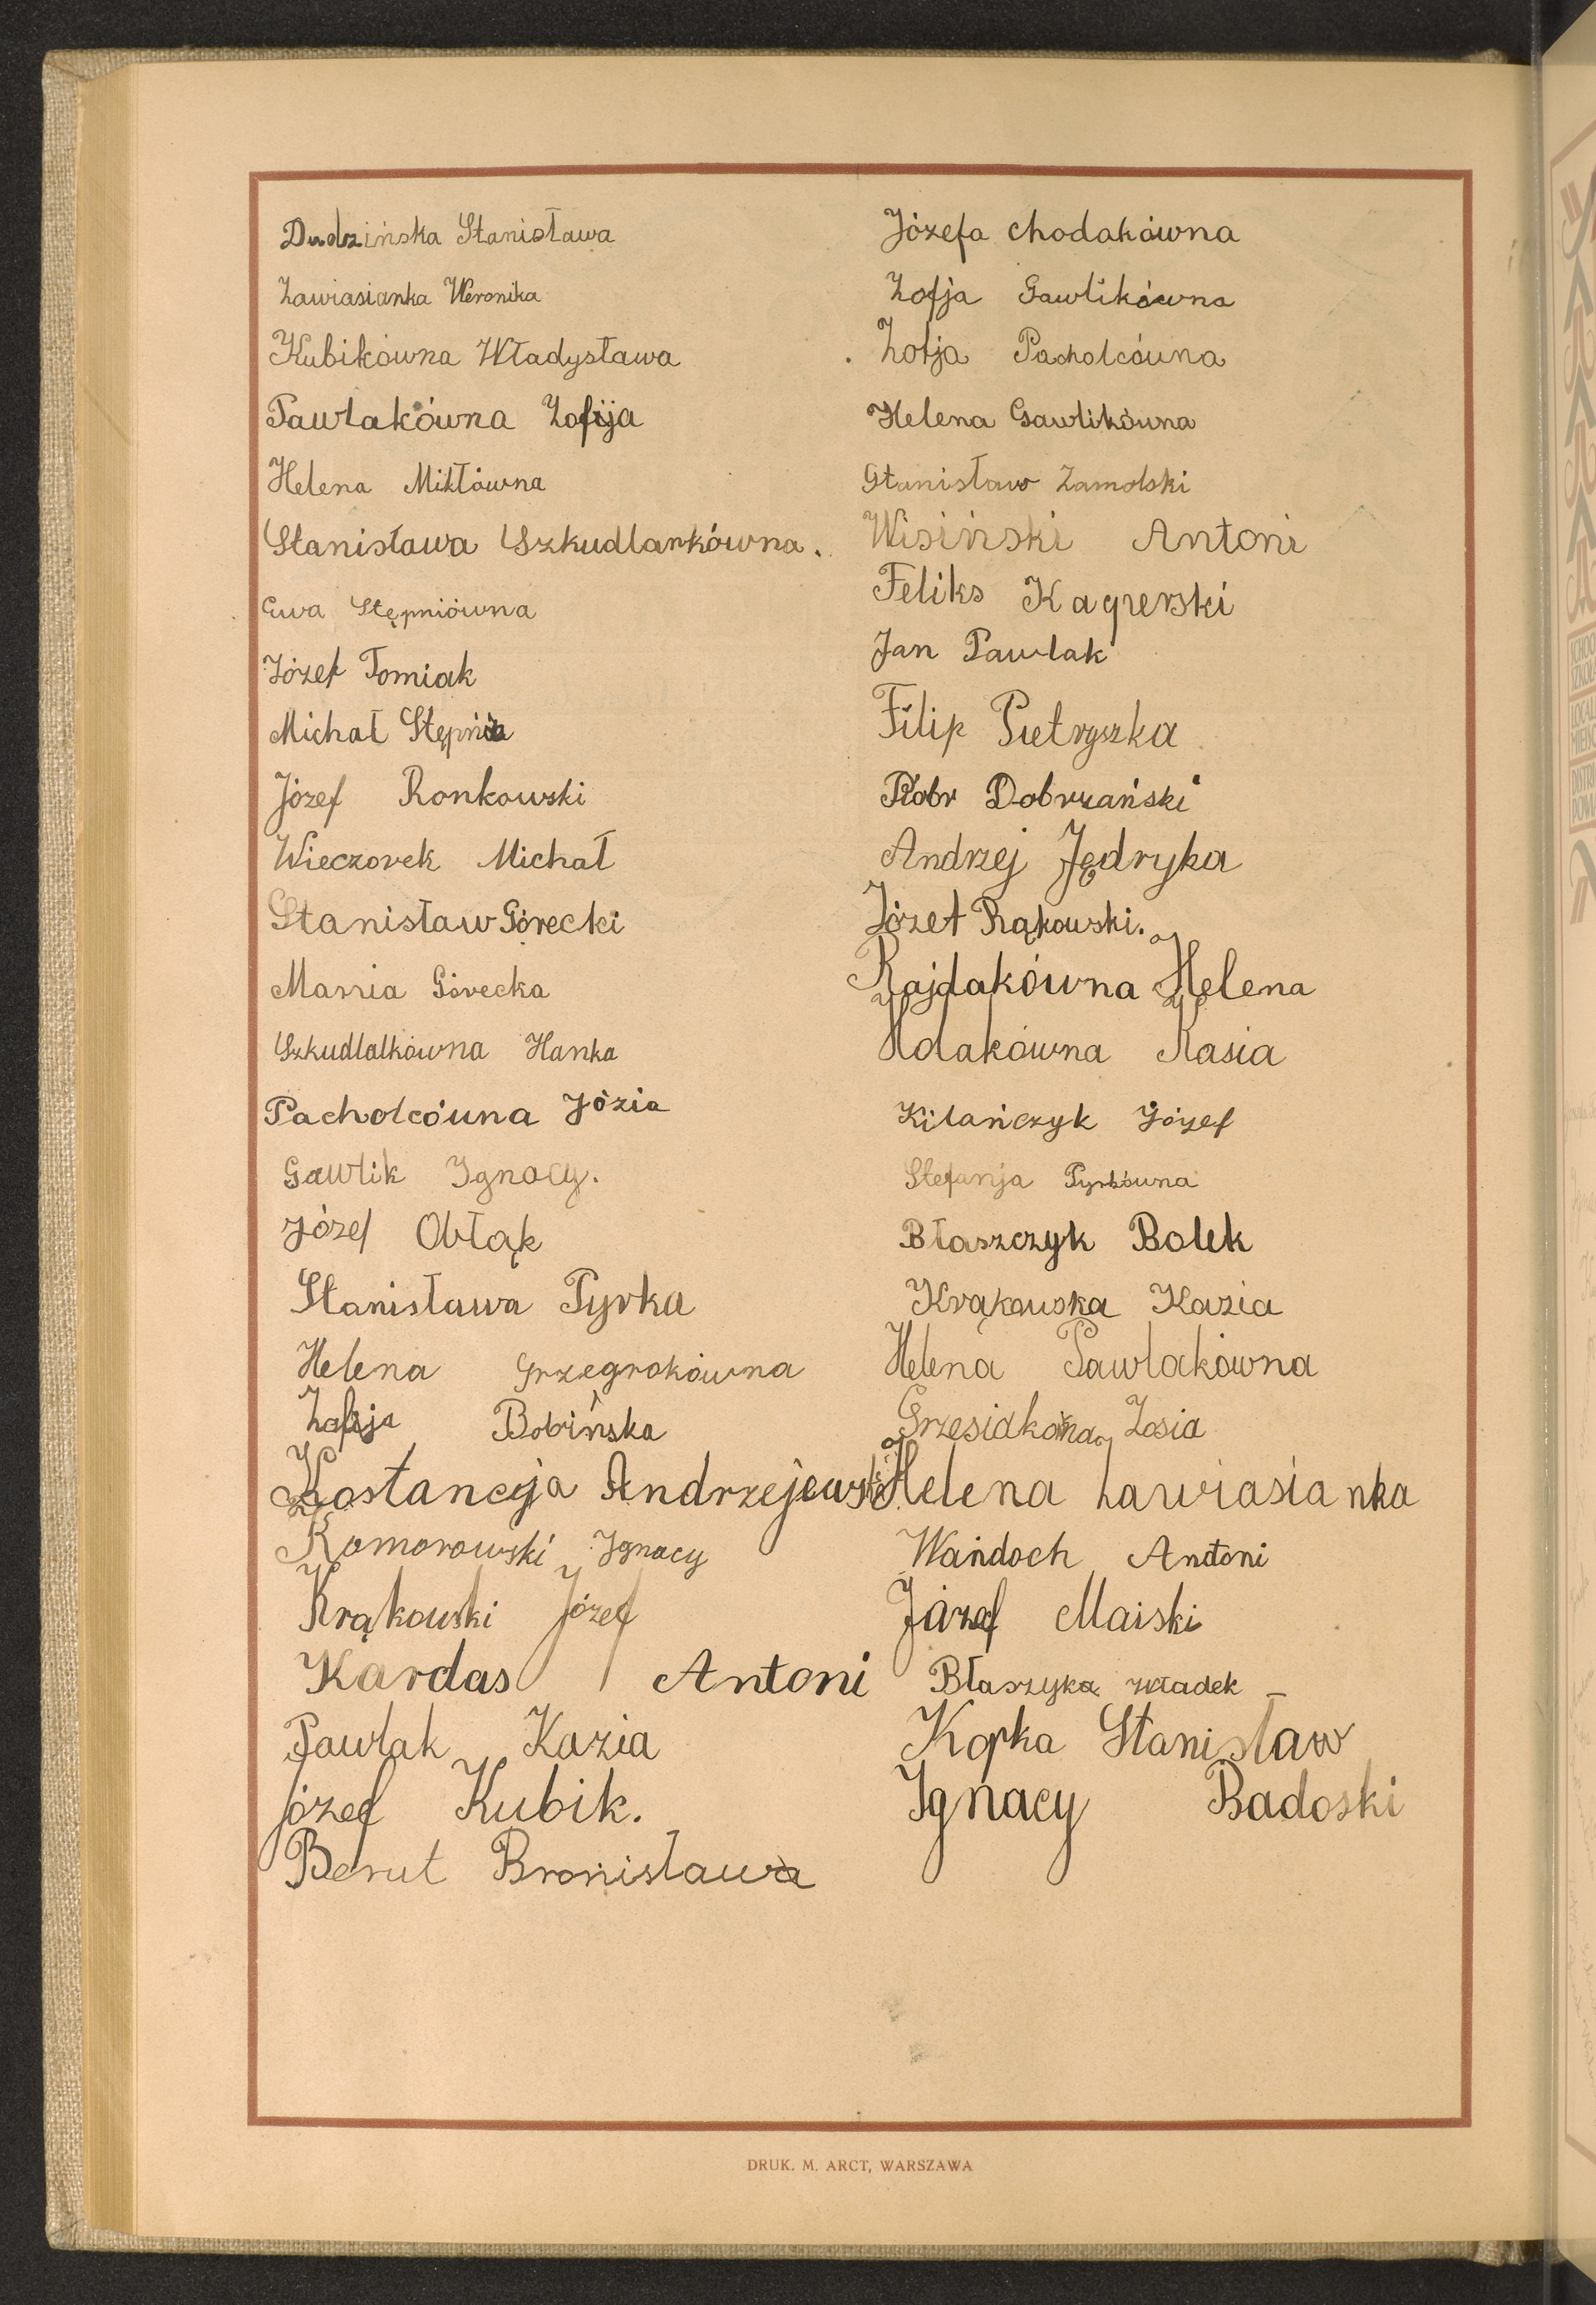 Dudzińska Stanisława
Zawiasianka Weronika
Kubikówna Władysława
Pawlakówna Zofija
Helena Mikłówna
Stanisława Szkudlarkówna.
Ewa Stępniówna
Józef Tomiak
Michał Stępnia
Józef Ronkowski
Wieczorek Michał
Stanisław Górecki
Marria Górecka
Szkudlalkówna Hanka
Pacholcówna Józia
Gawlik Ignacy.
Józef Obłąk
Stanisława Pyrka
Helena Grzegrokówna
Zofija Bobińska
Kostancyja Andrzejewska
Komorowski Ignacy
Krąkowski Józef
Kardas Antoni
Pawlak Kazia
józef Kubik.
Berut Bronisława
Józefa chodakówna
Zofja Gawlikówna
Zofja Pacholcówna
Helena Gawlikówna
Stanisław Zamolski
Wisiński Antoni
Feliks Kacperski
Jan Pawlak
Filip Pietryszka
Piotr Dobrzański
Andrzej Jędryka
Józef Rąkowski.
Rajdakówna Helena
Kasia
Kilańczyk Józef
Stefanja Pyrkówna
Błaszczyk Bolek
Krąkowska Kazia
Helena Pawlakówna
Zosia
Helena Zawiasianka
Wandoch Antoni
Józef Maiski
Błaszyka Władek
Kopka Stanisław
Ignacy Badoski
DRUK. M. ARCT, WARSZAWA